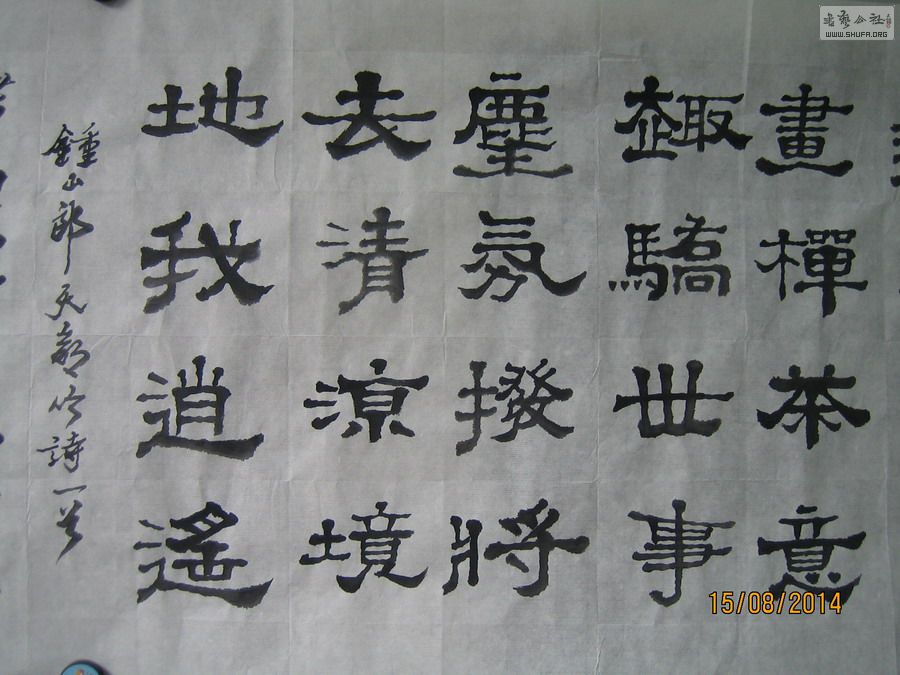 畫禪茶意
趣驕世事
塵氛撥將
去清涼境
地我逍遙
鍾山郎天吟詩一首
書藝公社
WWW.SHUFA.ORG
15/08/2014